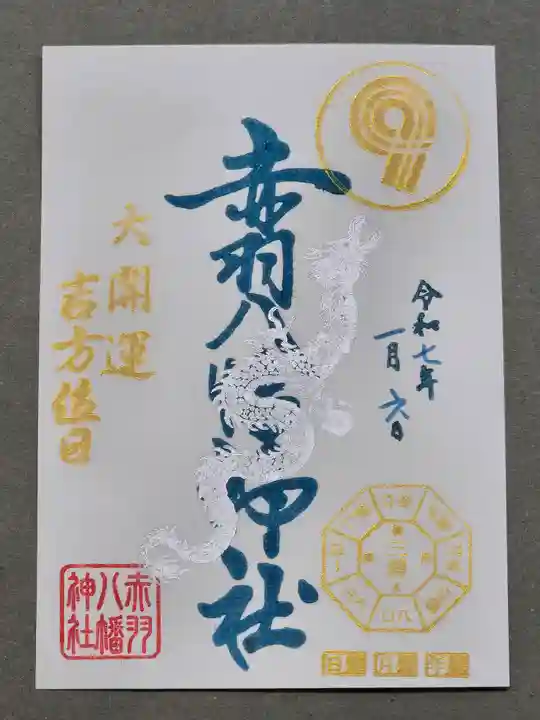 赤羽八幡神社
令和七年
一月六日
大開運
吉方位日
赤羽
八幡
神社